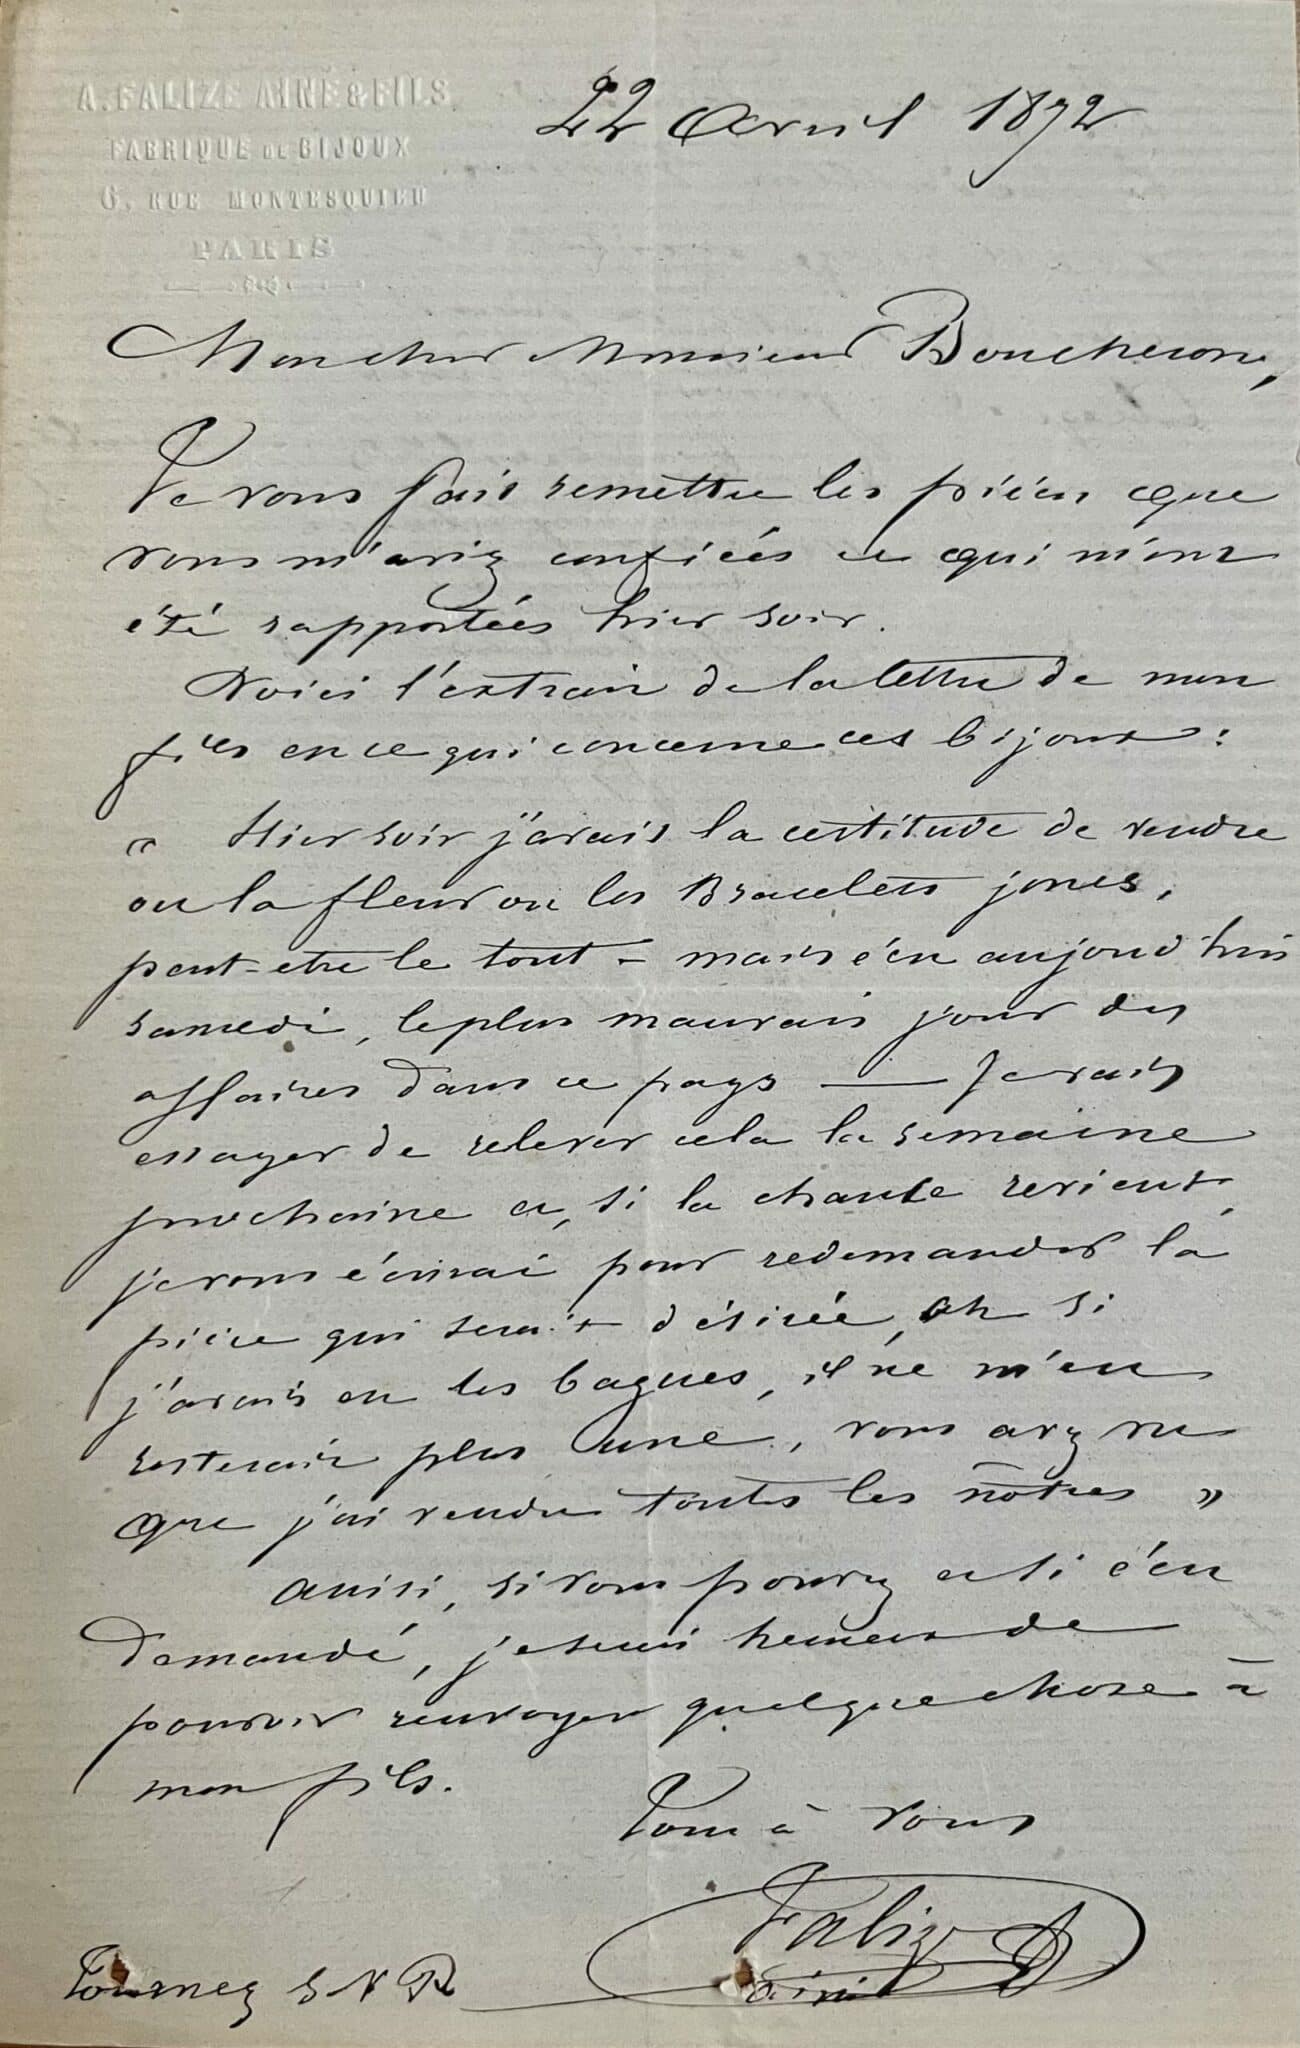 A. FALIZE AINÉ & FILS
FABRIQUE DE BIJOUX
6, RUE MONTESQUIEU
PARIS
22 Avril 1872
Mon cher Monsieur Boucheron,
Je vous fais remettre les pièces que
vous m'aviez confiées et qui m'ont
été rapportées hier soir.
Voici l'extrait de la lettre de mon
fils en ce qui concerne ces bijoux :
" Hier soir j'avais la certitude de vendre
ou la fleur ou les Bracelets joncs,
peut-etre le tout - mais c'est aujourd'hui
samedi, le plus mauvais jour des
affaires dans ce pays — Je vais
essayer de relever cela la semaine
prochaine et, si la chance revient,
je vous écrirai pour redemander la
pièce qui serait désirée, ah si
j'avais eu les bagues, il ne m'en
resterait plus une, vous avez vu
que j'ai vendu toutes les nôtres "
Ainsi, si vous pouvez et si c'est
demandé, je serai heureux de
pouvoir renvoyer quelque chose à
mon fils.
Tout à vous
Falize
ainé
Tournez S V P